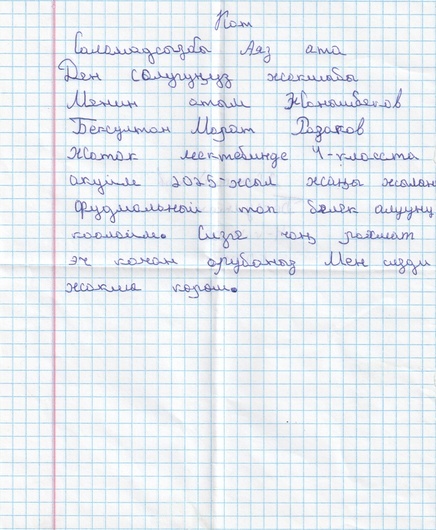 Кат
Саламадсызбы Аяз ата
Ден солугуңуз жакшабы
Менин атым Жанышбеков
Бексултан Марат Разаков
жатак мектебинде 4-класста
окуйм 2025-жыл жаңы жылан
фудмальный топ белек алууну
каалайм. Сизге чоң рахмат
эч качан орубаңыз Мен сизди
жакшы көрөм.